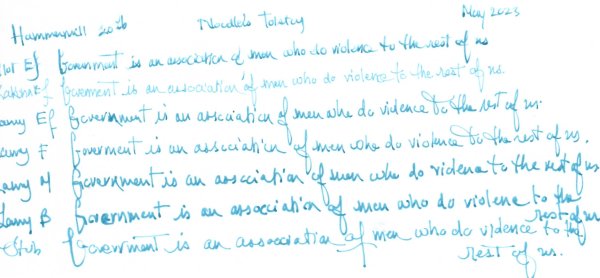 Hammermill 20 lb Noodler's Tolstoy May 2023
Pilot EF Government is an association of men who do violence to the rest of us
EF Goverment is an association of men who do violence to the rest of us.
Lamy EF Government is an association of men who do violence to the rest of us.
Lamy F Goverment is an association of men who do violence to the rest of us.
Lamy M Government is an association of men who do violence to the rest of us
Lamy B Government is an association of men who do violence to the rest of us
Stub Government is an association of men who do violence to the rest of us.